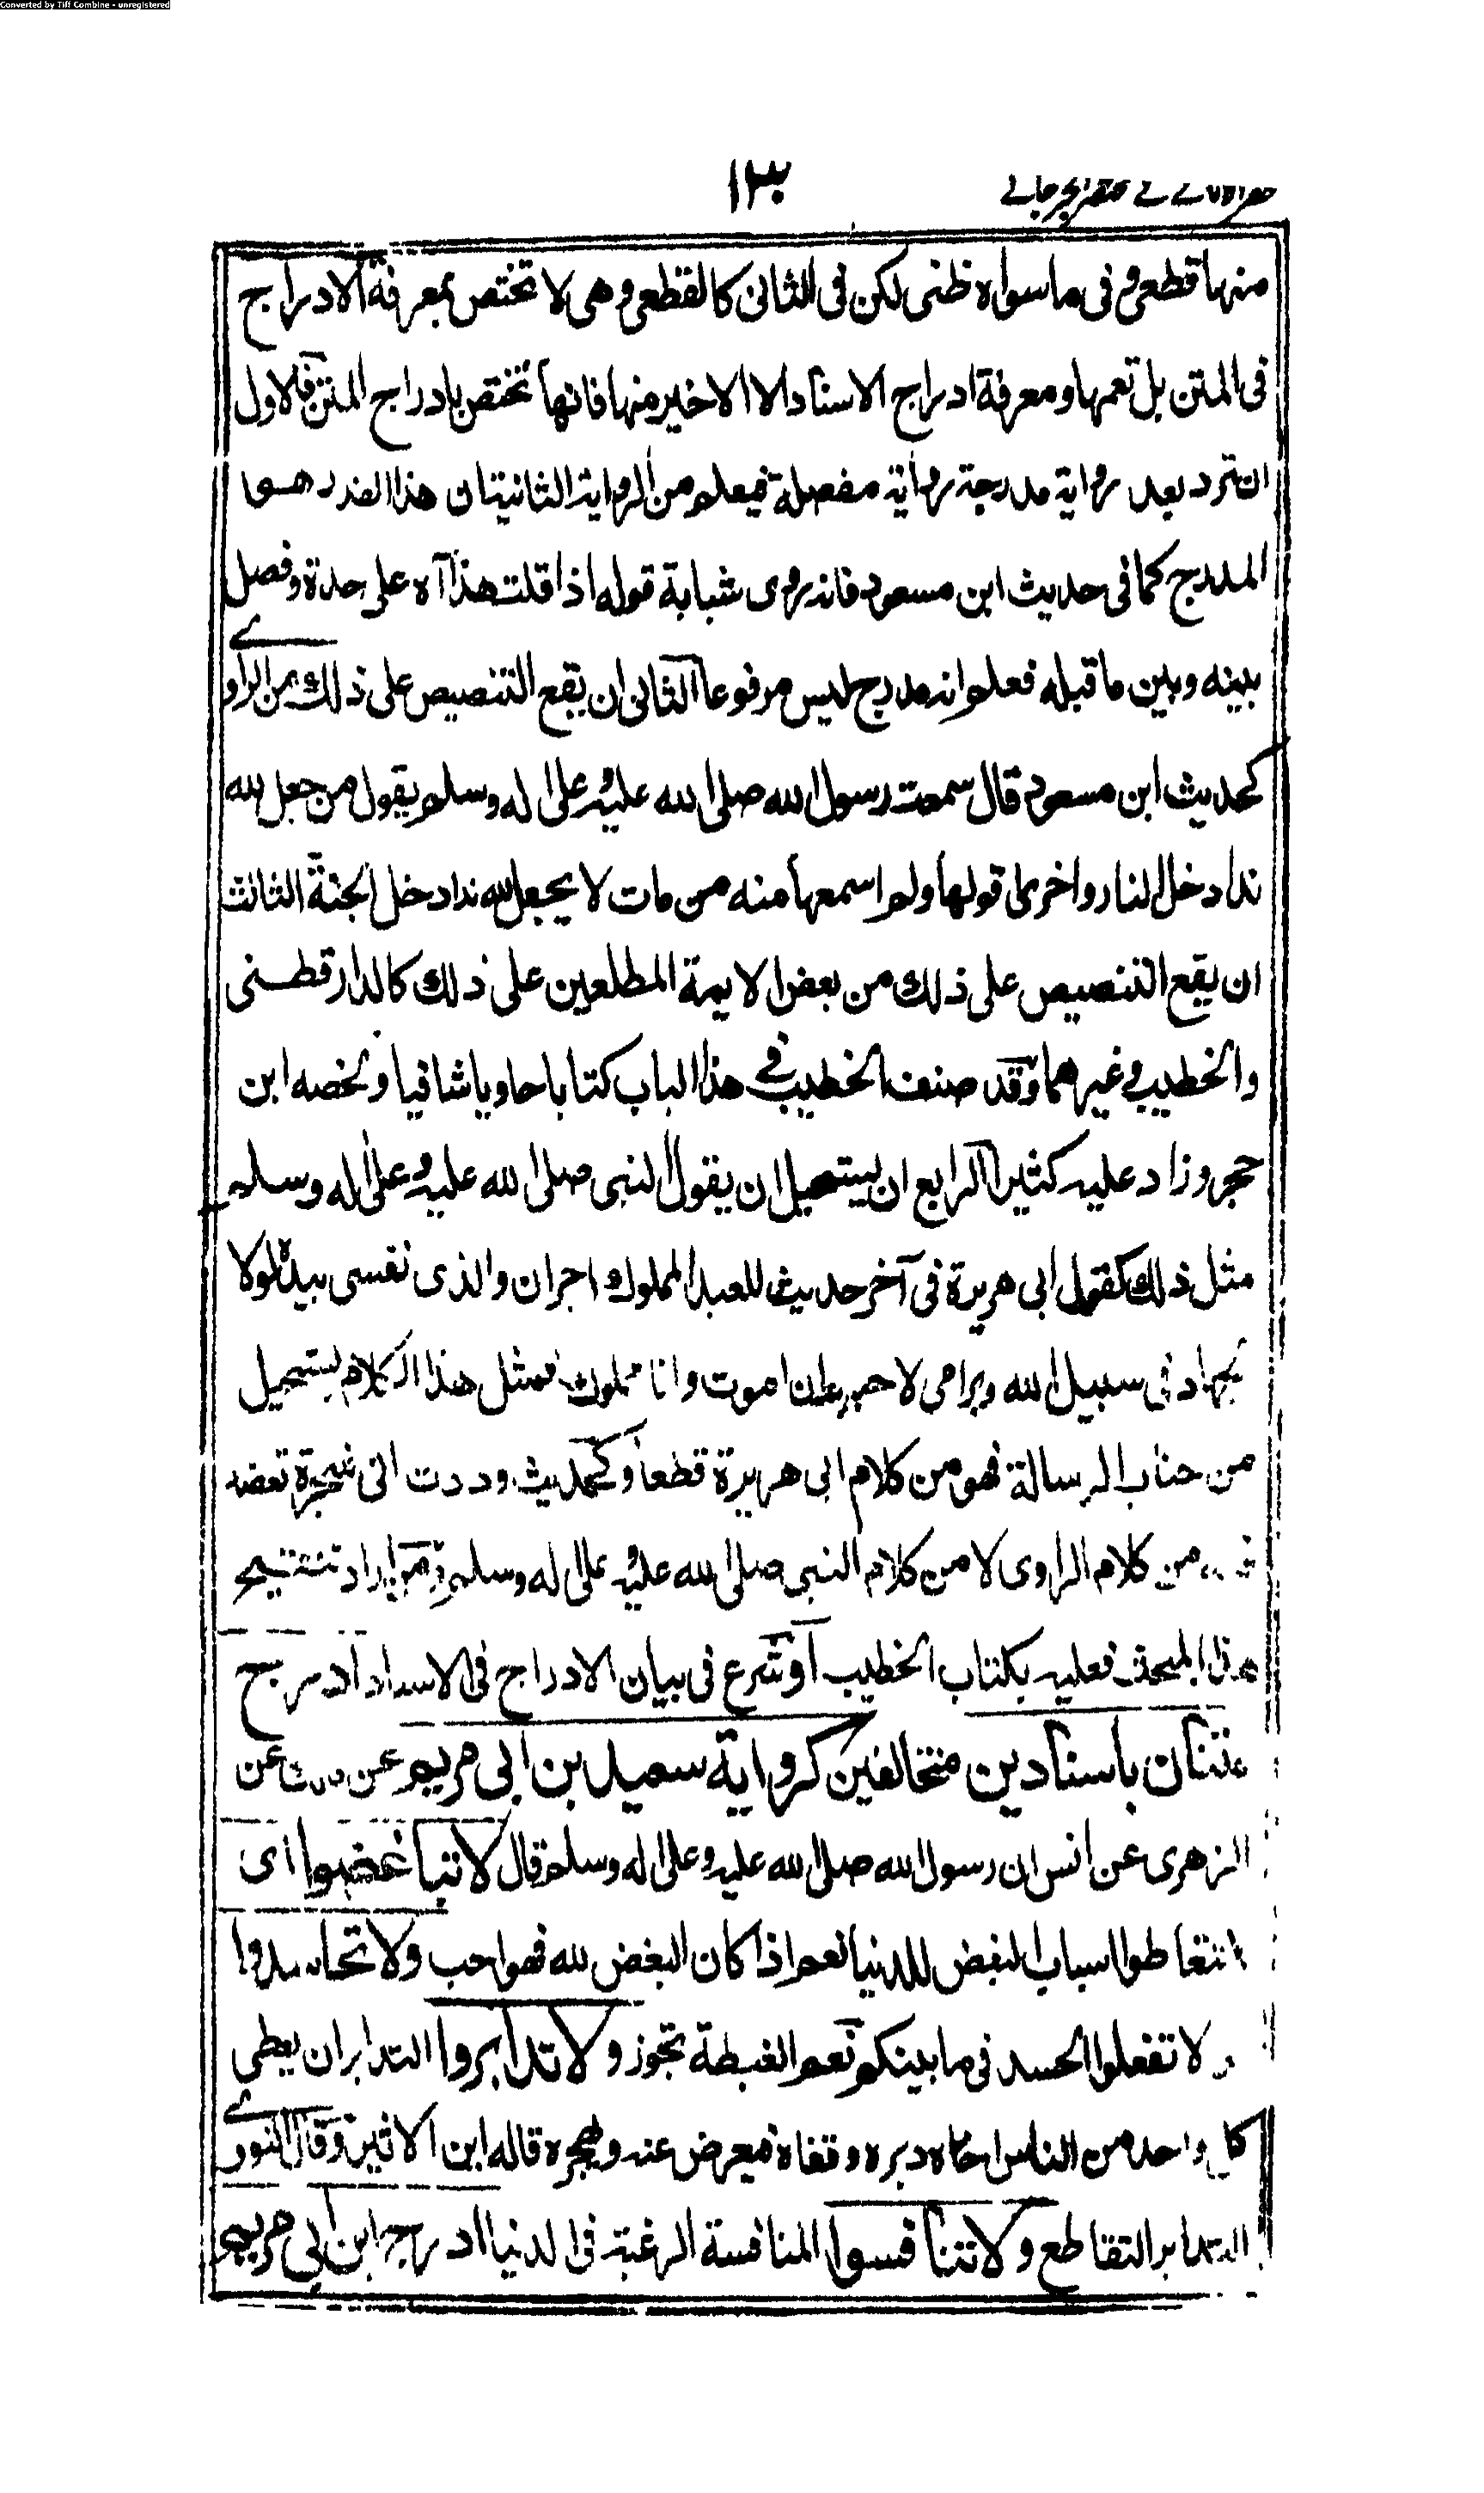 Converted by Tiff Combine - unregistered
١٣٠
منها قطعي وفى ما سواه ظنى لكن فى الثانى كالقطعي وهى لا تختص بمعرفة الادراج
فى المتن بل تعمها ومعرفة ادراج الاسناد الا الاخير منها فانها تختص بادراج المتن فالاول
ان ترد بعد رواية مدرجة رواية مفصلة فيعلم من الرواية الثانية ان هذا القدر هو
المدرج كما فى حديث ابن مسعود فانه روى شبابة قوله اذا قلت هذا آه على حدة وفصل
بينه وبين ما قبله فعلم انه مدرج ليس مرفوعا الثانى ان يقع التنصيص على ذلك من الراوے
كحديث ابن مسعود قال سمعت رسول الله صلى الله عليه وعلى اله وسلم يقول من جعل لله
ندا دخل النار واخرى اقولها ولم اسمعها منه من مات لا يجعل لله ندا دخل الجنة الثالث
ان يقع التنصيص على ذلك من بعض الايمة المطلعين على ذلك كالدارقطنى
والخطيب وغيرهما وقد صنف الخطيب فے هذا الباب كتابا حاويا شافيا ولخصه ابن
حجر وزاد عليه كثيرا الرابع ان يستحيل ان يقول النبى صلى الله عليه وعلى اله وسلم
مثل ذلك كقول ابى هريرة فى آخر حديث للعبد المملوك اجران والذى نفسى بيده لولا
الجهاد فى سبيل الله وبر امى لاحببت ان اموت وانا مملوك فمثل هذا الكلام يستحيل
من جناب الرسالة فهو من كلام ابى هريرة قطعا وكحديث وددت انى شجرة تعضد
من كلام الراوى لا من كلام النبى صلى الله عليه وعلى اله وسلم ومن اراد تنقيح
هذا المبحث فعليه بكتاب الخطيب آو شرع فى بيان الادراج فى الاسناد ادرج
متنان باسنادين متخالفين كرواية سعيد بن ابى مريم عن مالك عن
الزهرى عن انس ان رسول الله صلى الله عليه وعلى اله وسلم قال لا تباغضوا اى
لا تتعاطوا اسباب البغض للدنيا نعم اذا كان البغض لله فهو احب ولا تحاسدوا
لا تفعلوا الحسد فى ما بينكم نعم الغبطة تجوز ولا تدابروا التدابر ان يعطى
كل واحد من الناس اخاه دبره وقفاه فيعرض عنه ويهجره قاله ابن الاثير وقال النورے
التدابر التقاطع ولا تنافسوا المنافسة الرغبة فى الدنيا ادرج ابن ابى مريم